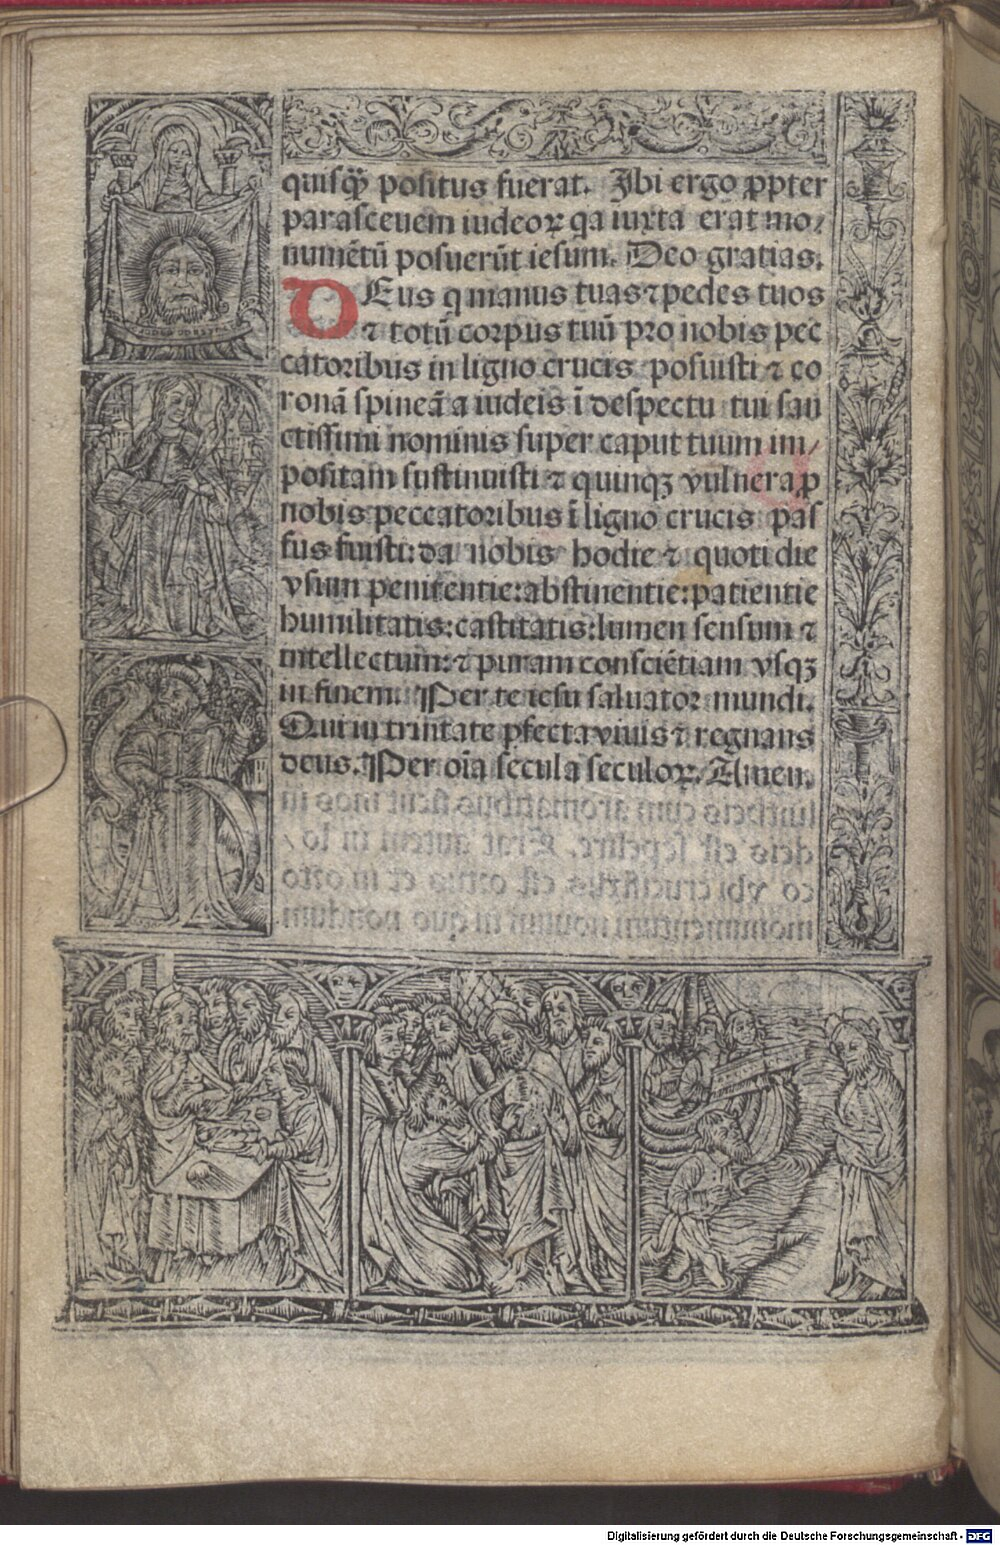 quisq̃ȝ positus fuerat. Ibi ergo ꝓpter
parasceuem iudeoꝝ qa iuxta erat mo/
numētū posuerūt iesum. Deo gratias.
DEus q manus tuas ⁊ pedes tuos
⁊ totū corpus tuū pro nobis pec
catoribus in ligno crucis posuisti ⁊ co
ronā spineā a iudeis ī despectu tui san
ctissimi nominis super caput tuum im/
positam sustinuisti ⁊ quinqꝫ vulnera ꝓ
nobis peccatoribus ī ligno crucis pas
sus fuisti: da nobis hodie ⁊ quotidie
vsum penitentie: abstinentie: patientie
humilitatis: castitatis: lumen sensum ⁊
intellectum: ⁊ puram consciētiam vsqꝫ
in finem. Per te iesu saluator mundi.
Qui in trinitate ꝑfecta viuis ⁊ regnans
deus. Per oīa secula seculoꝝ. Amen.
Digitalisierung gefördert durch die Deutsche Forschungsgemeinschaft - DFG